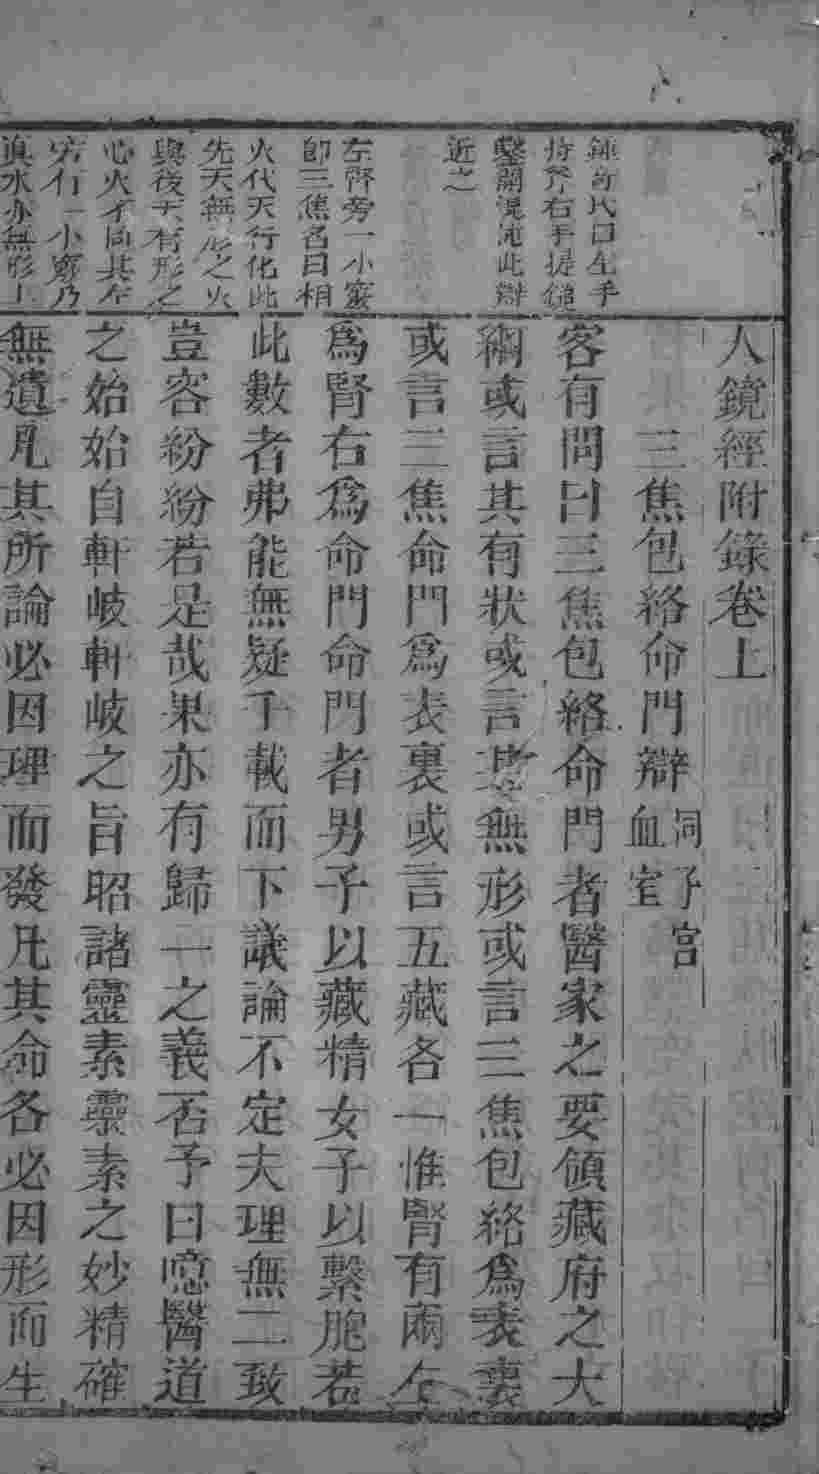 人鏡經附錄卷上
三焦包絡命門辯
同子宮
血室
客有問曰三焦包絡命門者醫家之要領藏府之大
綱或言其有狀或言其無形或言三焦包絡爲表裏
或言三焦命門爲表裏或言五藏各一惟腎有兩左
爲腎右爲命門命門者男子以藏精女子以繫胞若
此數者弗能無疑千載而下議論不定夫理無二致
豈容紛紛若是哉果亦有歸一之義否予曰噫醫道
之始始自軒岐軒岐之旨昭諸靈素靈素之妙精確
無遺凡其所論必因理而發凡其命名必因形而生
鍾奇氏曰左手
持斧右手提鎚
鑿開混沌此辯
近之
左臍旁一小竅
即三焦名曰相
火代天行化此
先天無形之火
與後天有形之
心火不同其左
旁有一小竅乃
眞水亦無形上